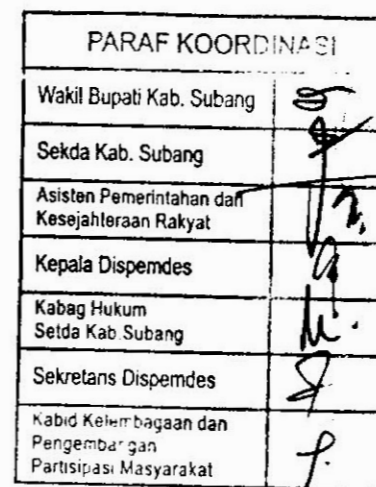 PARAF KOORDINASI
Wakil Bupati Kab. Subang
Sekda Kab. Subang
Asisten Pemerintahan dan
Kesejahteraan Rakyat
Kepala Dispemdes
Kabag Hukum
Setda Kab.Subang
Sekretaris Dispemdes
Kabid Kelembagaan dan
Pengembangan
Partisipasi Masyarakat